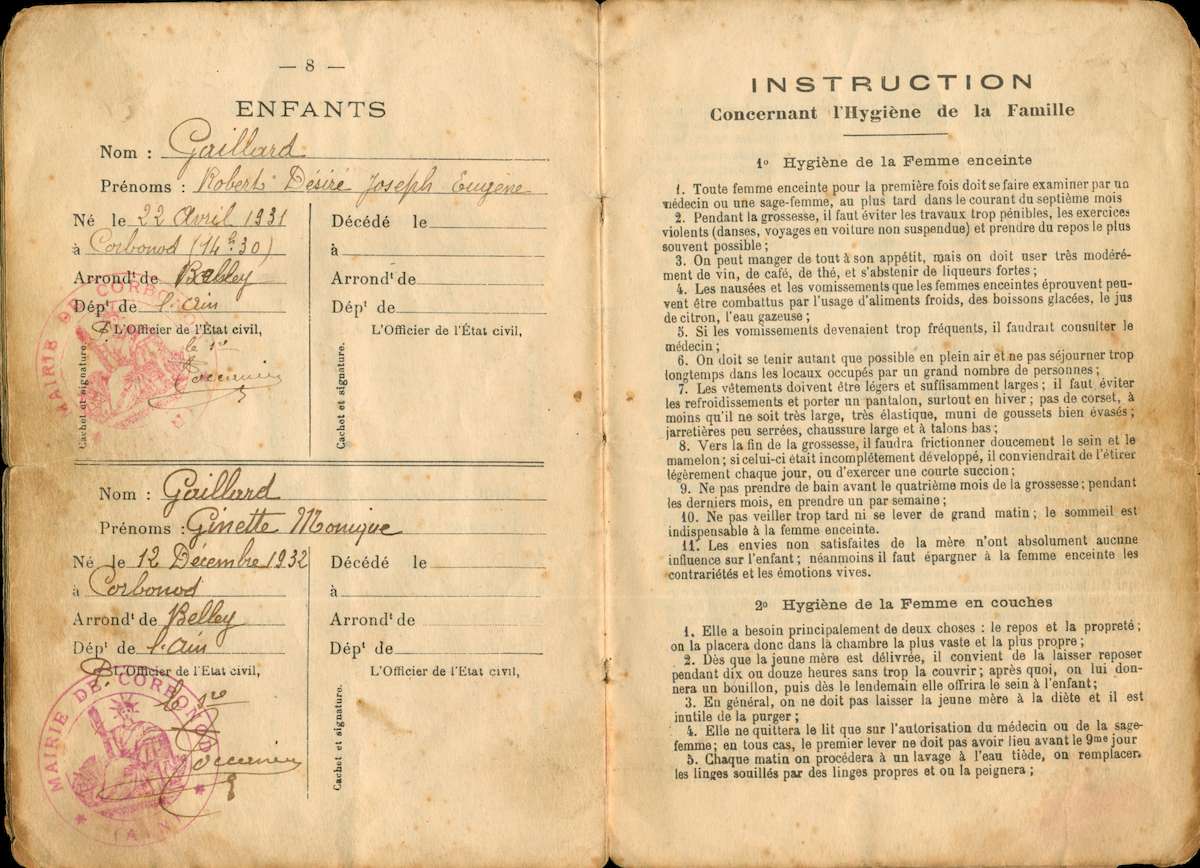 — 8 —
ENFANTS
Nom : Gaillard
Prénoms : Robert Désiré Joseph Eugène
Né le 22 Avril 1931
à Corbonod (14h.30)
Arrondt de Belley
Dépt de l'Ain
P. L'Officier de l'État civil,
le sre
Cachet et signature.
MAIRIE DE CORBONOD
Décédé le
à
Arrondt de
Dépt de
L'Officier de l'État civil,
Cachet et signature.
Nom : Gaillard
Prénoms : Ginette Monique
Né le 12 Décembre 1932
à Corbonod
Arrondt de Belley
Dépt de l'Ain
P. L'Officier de l'Etat civil,
le sre
MAIRIE DE CORBONOD
(AIN)
Décédé le
à
Arrondt de
Dépt de
L'Officier de l'Etat civil,
Cachet et signature.
INSTRUCTION
Concernant l'Hygiène de la Famille
1o Hygiène de la Femme enceinte
1. Toute femme enceinte pour la première fois doit se faire examiner par un
médecin ou une sage-femme, au plus tard dans le courant du septième mois
2. Pendant la grossesse, il faut éviter les travaux trop pénibles, les exercices
violents (danses, voyages en voiture non suspendue) et prendre du repos le plus
souvent possible ;
3. On peut manger de tout à son appétit, mais on doit user très modéré-
ment de vin, de café, de thé, et s'abstenir de liqueurs fortes ;
4. Les nausées et les vomissements que les femmes enceintes éprouvent peu-
vent être combattus par l'usage d'aliments froids, des boissons glacées, le jus
de citron, l'eau gazeuse ;
5. Si les vomissements devenaient trop fréquents, il faudrait consulter le
médecin ;
6. On doit se tenir autant que possible en plein air et ne pas séjourner trop
longtemps dans les locaux occupés par un grand nombre de personnes ;
7. Les vêtements doivent être légers et suffisamment larges ; il faut éviter
les refroidissements et porter un pantalon, surtout en hiver ; pas de corset, à
moins qu'il ne soit très large, très élastique, muni de goussets bien évasés ;
jarretières peu serrées, chaussure large et à talons bas ;
8. Vers la fin de la grossesse, il faudra frictionner doucement le sein et le
mamelon ; si celui-ci était incomplétement développé, il conviendrait de l'étirer
légèrement chaque jour, ou d'exercer une courte succion ;
9. Ne pas prendre de bain avant le quatrième mois de la grossesse ; pendant
les derniers mois, en prendre un par semaine ;
10. Ne pas veiller trop tard ni se lever de grand matin ; le sommeil est
indispensable à la femme enceinte.
11. Les envies non satisfaites de la mère n'ont absolument aucune
influence sur l'enfant ; néanmoins il faut épargner à la femme enceinte les
contrariétés et les émotions vives.
2o Hygiène de la Femme en couches
1. Elle a besoin principalement de deux choses : le repos et la propreté ;
on la placera donc dans la chambre la plus vaste et la plus propre ;
2. Dès que la jeune mère est délivrée, il convient de la laisser reposer
pendant dix ou douze heures sans trop la couvrir ; après quoi, on lui don-
nera un bouillon, puis dès le lendemain elle offrira le sein à l'enfant ;
3. En général, on ne doit pas laisser la jeune mère à la diète et il est
inutile de la purger ;
4. Elle ne quittera le lit que sur l'autorisation du médecin ou de la sage-
femme ; en tous cas, le premier lever ne doit pas avoir lieu avant le 9me jour
5. Chaque matin on procédera à un lavage à l'eau tiède, on remplacer.
les linges souillés par des linges propres et ou la peignera ;